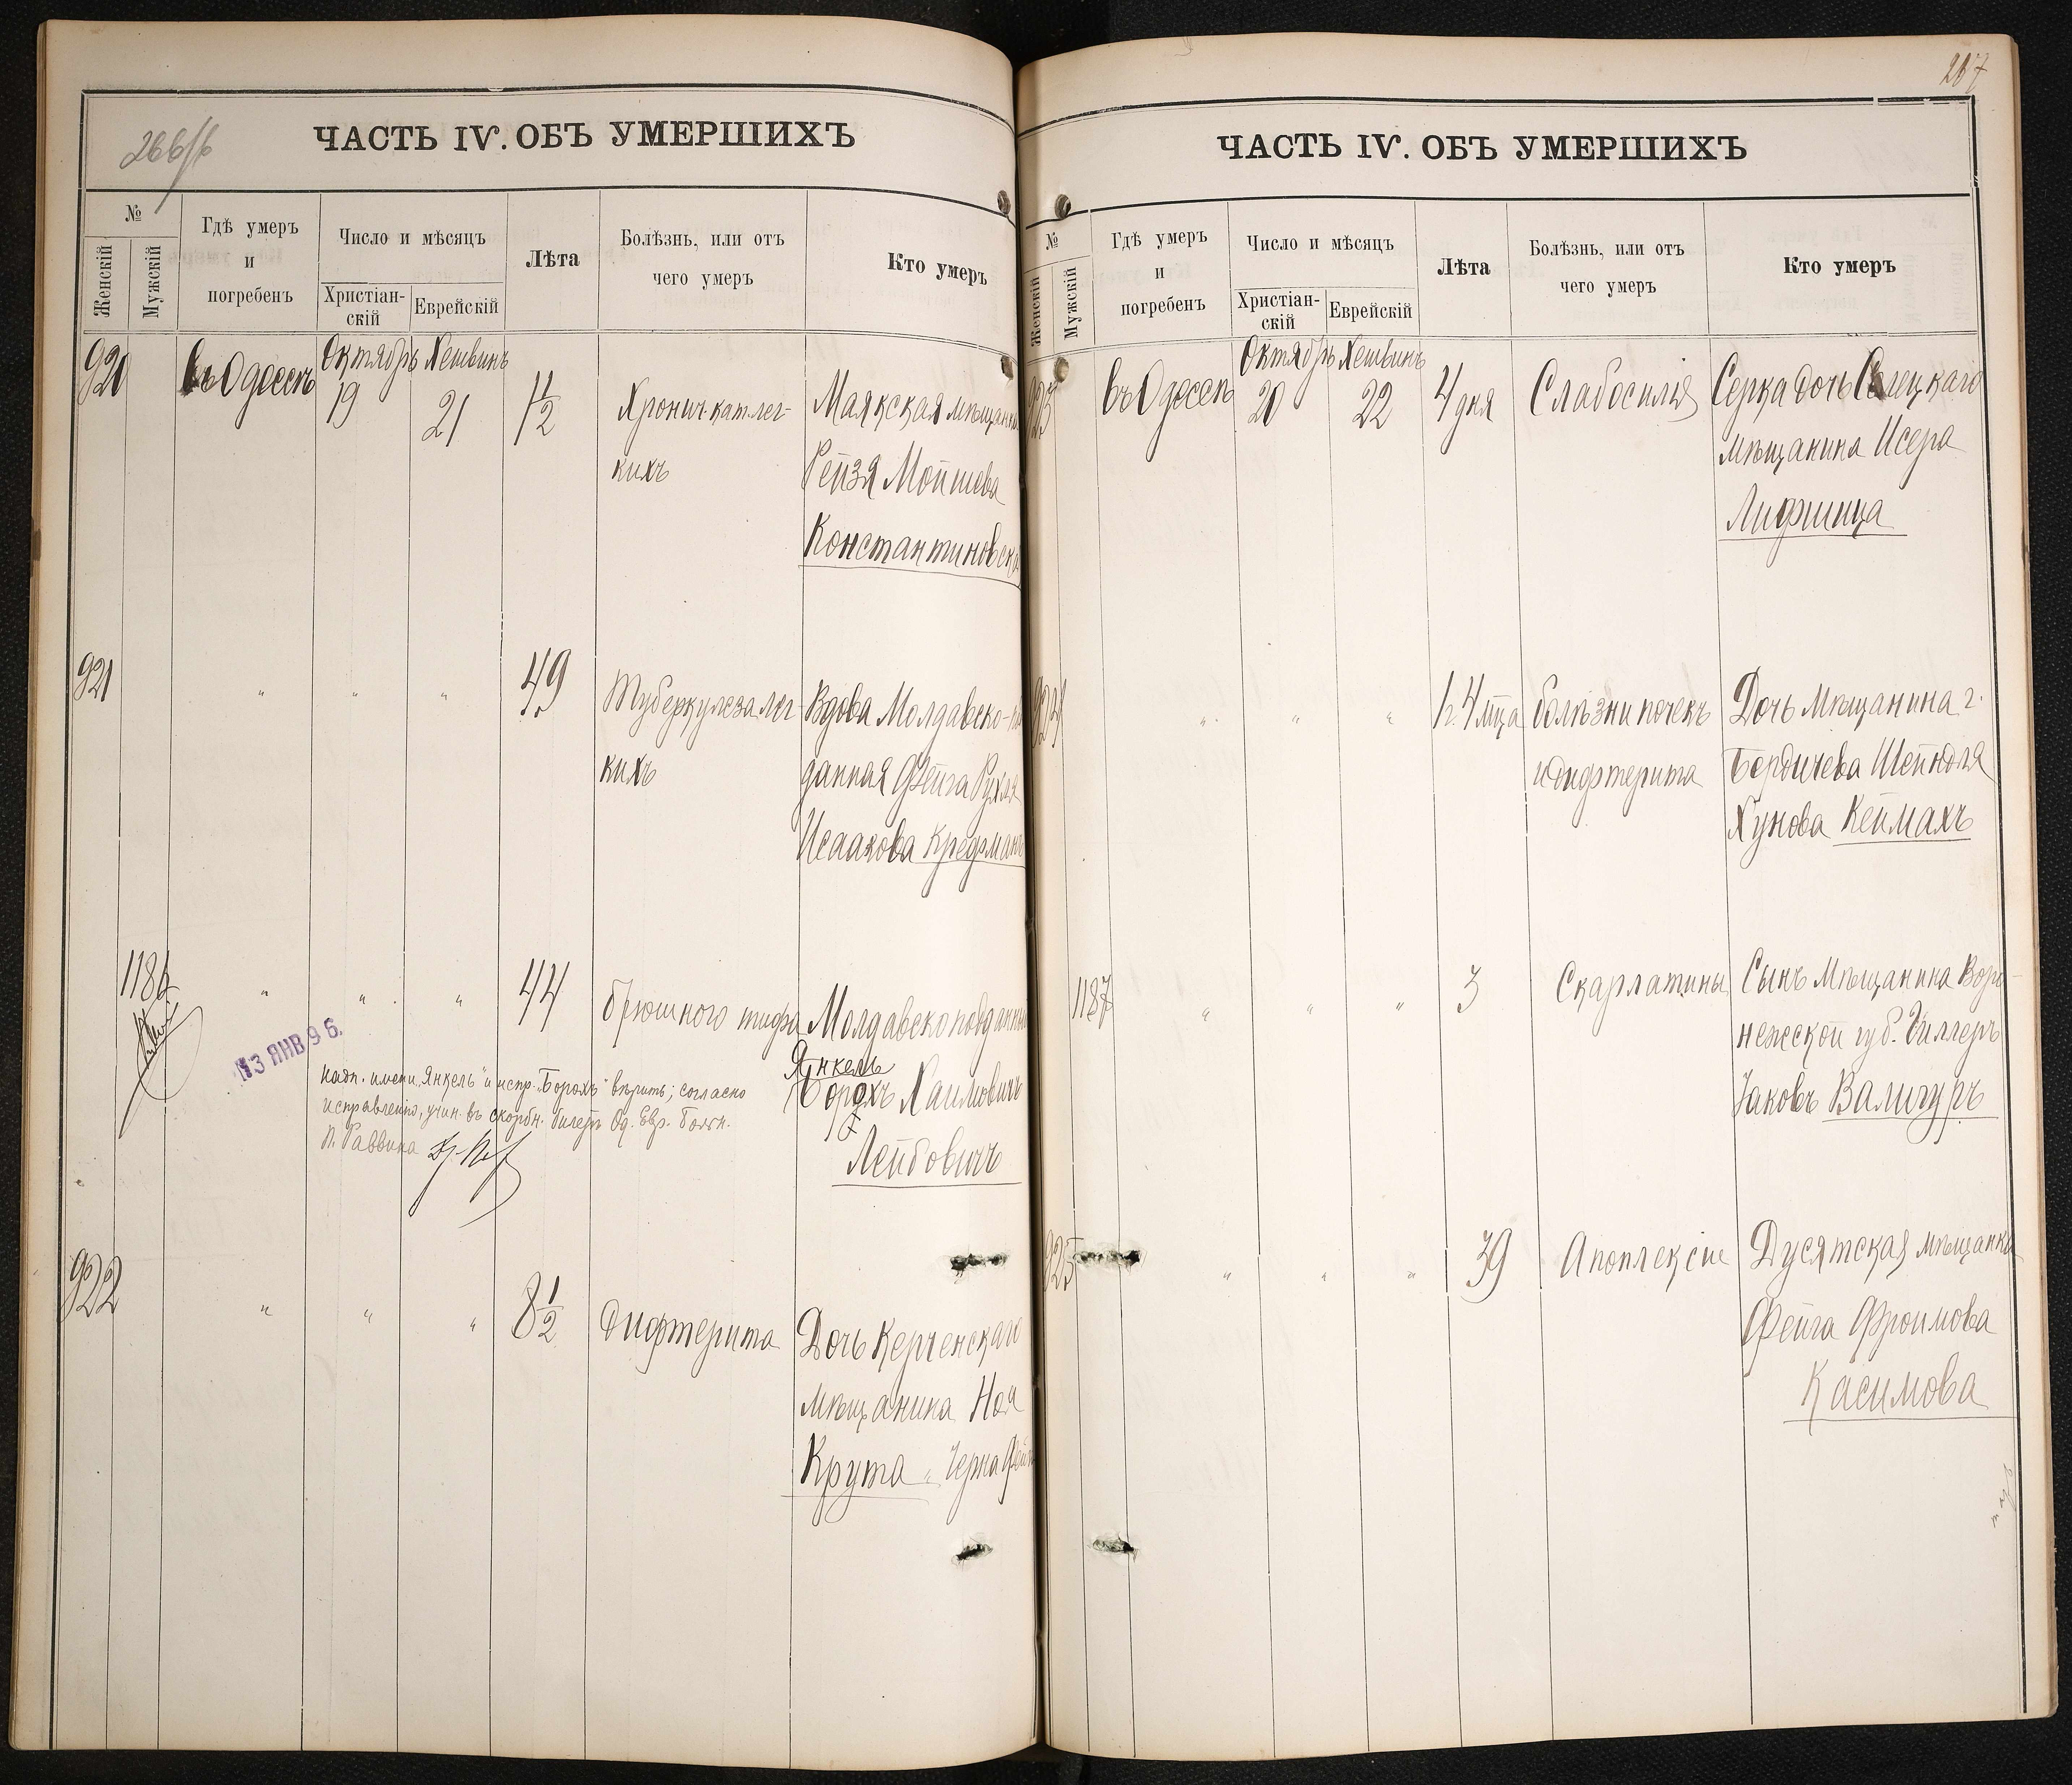 266/б
ЧАСТЬ IV. ОБЪ УМЕРШИХЪ
№
Женскій
Мужскій
Гдѣ умеръ
и
погребенъ
Число и мѣсяцъ
Христіан-
скій
Еврейскій
Лѣта
Болѣзнь, или отъ
чего умеръ
Кто умеръ
920
въ Одессѣ
Октябрь
19
Хешвинъ
21
1 1/2
Хронич. кат. лег-
кихъ
Маякская мѣщанка
Рейзя Мойшева
Константиновска
921
" " "
49
Туберкулеза лег-
кихъ
Вдова Молдавско-по
данная Фейга Рухля
Исаакова Кредманъ
1186
" " "
44
брюшного тифа
Молдавскоподанный
Янкель
Борохъ Хаимовичъ
Лейбовичъ
13 ЯНВ 96.
надп. имени „Янкель" и испр. „Борохъ" вѣрить; согласно
исправленію, учин. въ скорбн. билетѣ Од. Евр. Больн.
П. Раввина
922
" " "
8 1/2
Дифтерита
Дочь Керченскаго
мѣщанина Ноя
Крута „ Черна Фей
267
ЧАСТЬ IV. ОБЪ УМЕРШИХЪ
№
Женскій
Мужскій
Гдѣ умеръ
и
погребенъ
Число и мѣсяцъ
Христіан-
скій
Еврейскій
Лѣта
Болѣзнь, или отъ
чего умеръ
Кто умеръ
въ Одессѣ
Октябрь
20
Хешвинъ
22
4 дня
Слабосилія
Серка дочь
мѣщанина Исера
Лифшица
924
" " "
1 г. 4 мѣца
болѣзни почекъ
и дифтерита
Дочь Мѣщанина г.
Бердичева Шейндля
Хунова Кеймахъ
1187
" " "
3
Скарлатины
Сынъ Мѣщанина Воро-
нежской губ. Гиллеръ
Яковъ Валигуръ
925
" " "
39
Апоплексіи
Дусятская мѣщанка
Фейга Фроимова
Касимова